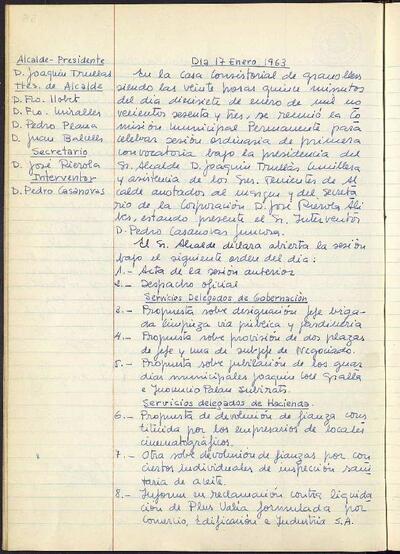 Alcalde-Presidente
D. Joaquín Trullás
Ttes. de Alcalde
D. Fco. Llobet
D. Fco. Miralles
D. Pedro Plana
D. Juan
Secretario
D. José Rierola
Interventor
D. Pedro Casanovas
DIA 17 Enero 1963
En la Casa Consistorial de Granollers
siendo las veinte horas quince minutos
del dia diecisiete de enero de mil no
vecientos sesenta y tres, se reunió la Co
misión Municipal Permanente para
celebrar sesión ordinaria de primera
convocatoria bajo la presidencia del
Sr. Alcalde D. Joaquín Trullás
y asistencia de los Sres. Tenientes de Al
calde anotados al margen y del Secreta
rio de la Corporación D. José Rierola
estando presente el Sr. Interventor
D. Pedro Casanovas
El Sr. Alcalde declara abierta la sesión
bajo el siguiente orden del dia:
1.- Acta de la sesión anterior
2.- Despacho oficial
Servicios Delegados de Gobernación
3.- Propuesta sobre designación jefe briga
da limpieza via pública y jardineria
4.- Propuesta sobre provisión de dos plazas
de jefe y una de subjefe de Negociado.
5.- Propuesta sobre jubilación de los guar
dias municipales Joaquín Coll
e Inocencio Palau Subirats.
Servicios delegados de Hacienda
6.- Propuesta de devolución de fianza cons
tituida por los empresarios de locales
cinematográficos.
7.- Otra sobre devolución de fianzas por con
ciertos individuales de inspección sani
taria de aceite.
8.- Informe en reclamación contra liquida
ción de Plus Valia formulada por
Comercio, Edificación e Industria S.A.